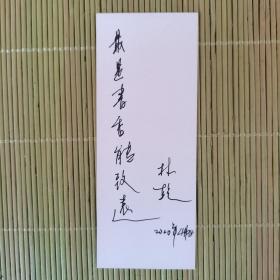 最是书香能致远
林乾
2020年